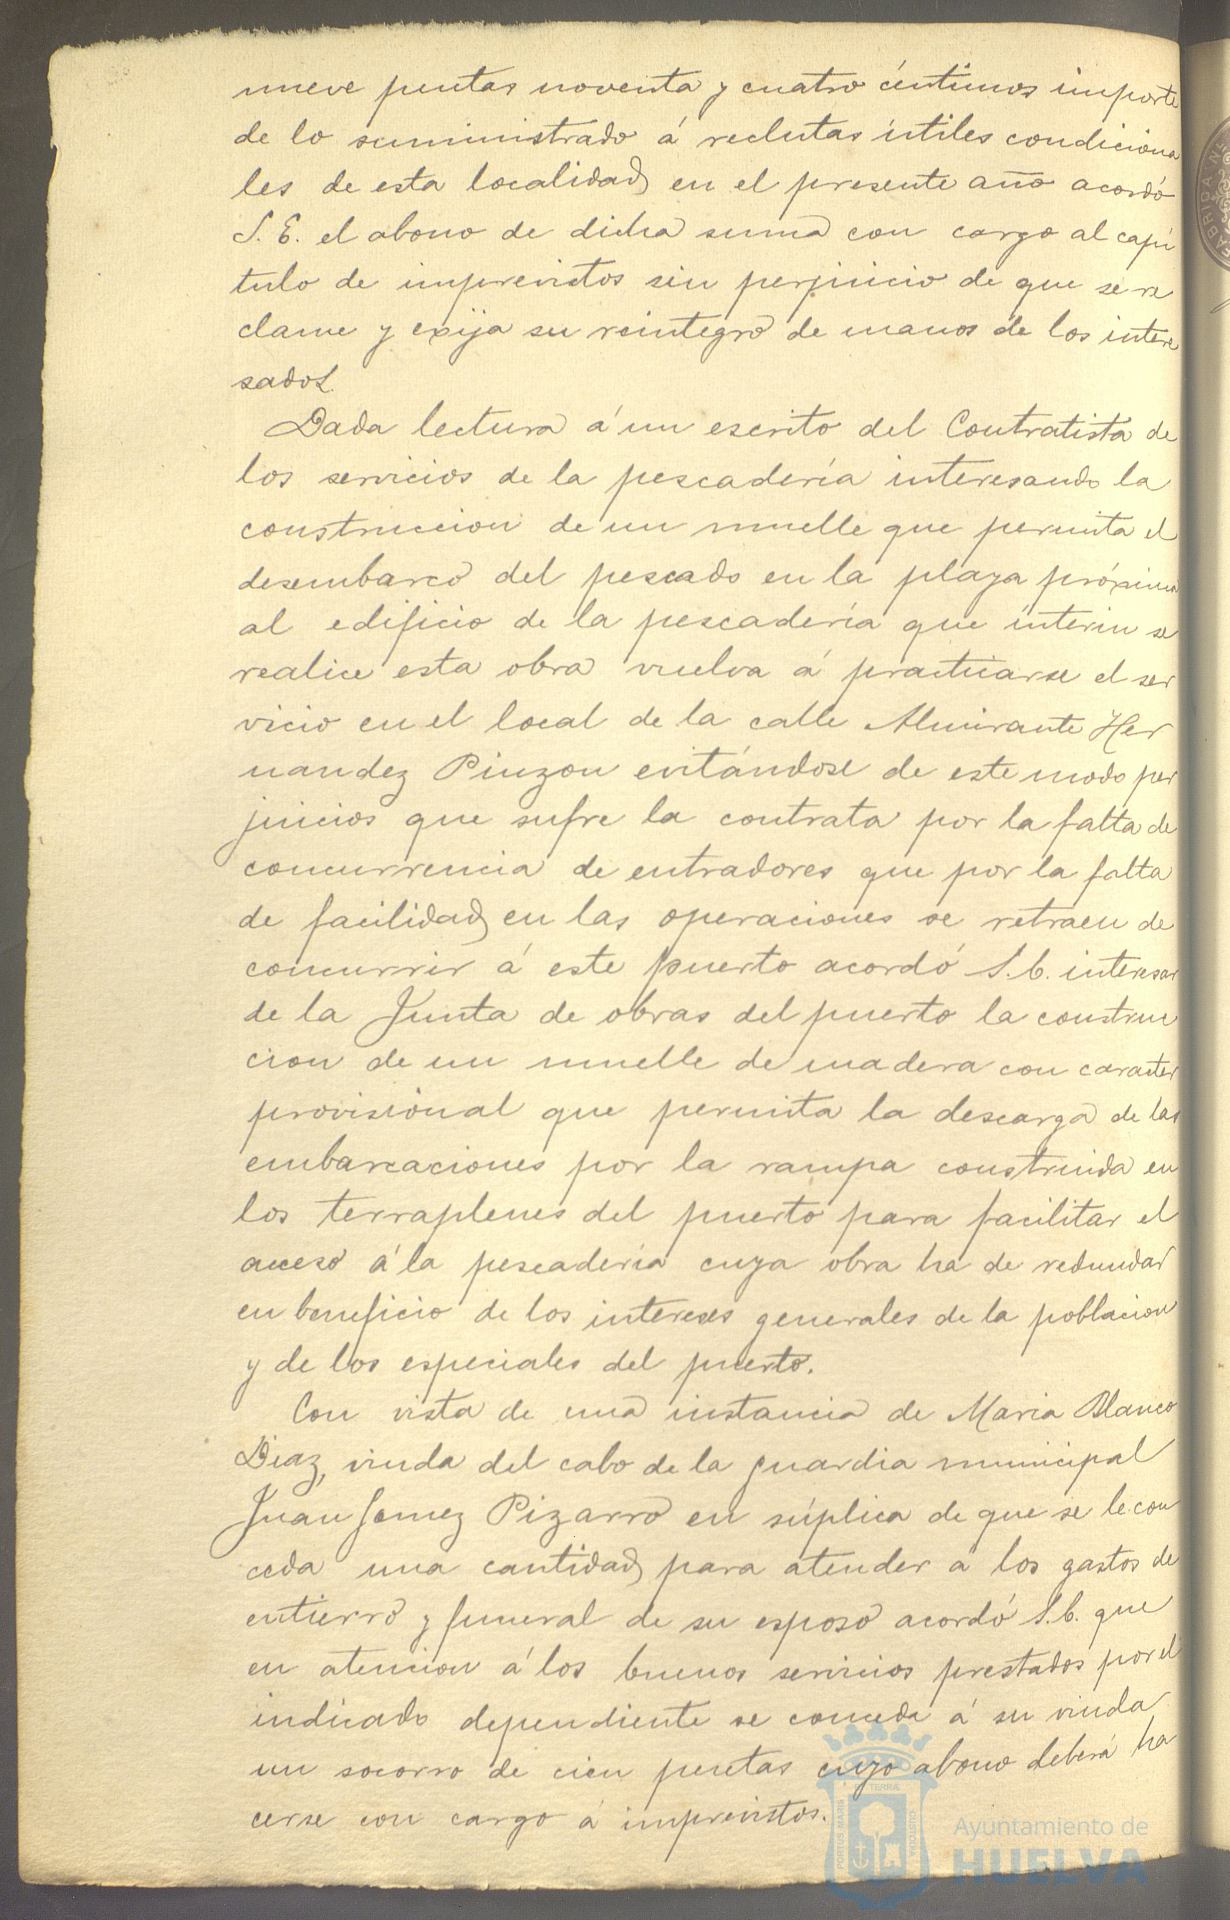 nueve pesetas noventa y cuatro céntimos importe
de lo suministrado á reclutas útiles condiciona
les de esta localidad en el presente año acordó
S. E. el abono de dicha suma con cargo al capí
tulo de imprevistos sin perjuicio de que se re
clame y exija su reintegro de manos de los intere
sados.
Dada lectura á un escrito del Contratista de
los servicios de la pescadería interesando la
construccion de un muelle que permita el
desembarco del pescado en la playa próxima
al edificio de la pescadería que interin se
realice esta obra vuelva á practicarse el ser
vicio en el local de la calle Almirante Her
nandez Pinzon evitándose de este modo per
juicios que sufre la contrata por la falta de
concurrencia de entradores que por la falta
de facilidad en las operaciones se retraen de
concurrir á este puerto acordó S. E. interesar
de la Junta de obras del puerto la construc
cion de un muelle de madera con caracter
provisional que permita la descarga de las
embarcaciones por la rampa construida en
los terraplenes del puerto para facilitar el
acceso á la pescaderia cuya obra ha de redundar
en beneficio de los intereses generales de la poblacion
y de los especiales del puerto.
Con vista de una instancia de Maria Blanco
Diaz, viuda del cabo de la guardia municipal
Juan Gomez Pizarro en súplica de que se le con
ceda una cantidad para atender á los gastos de
entierro y funeral de su esposo acordó S. E. que
en atencion á los buenos servicios prestados por el
indicado dependiente se conceda á su viuda
un socorro de cien pesetas cuyo abono deberá ha
cerse con cargo á imprevistos.
PORTUS MARIS ET TERRÆ CUSTODIA
Ayuntamiento de
HUELVA